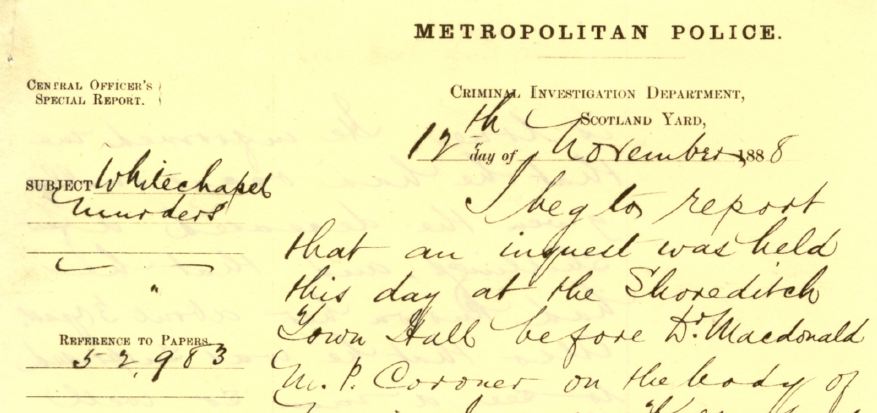 METROPOLITAN POLICE.
CENTRAL OFFICER'S
SPECIAL REPORT.
CRIMINAL INVESTIGATION DEPARTMENT,
SCOTLAND YARD,
12th day of November, 1888
SUBJECT Whitechapel
Murders
"
REFERENCE TO PAPERS.
52,983
I beg to report
that an inquest was held
this day at the Shoreditch
Town Hall before Dr. Macdonald
M.P. Coroner on the body of